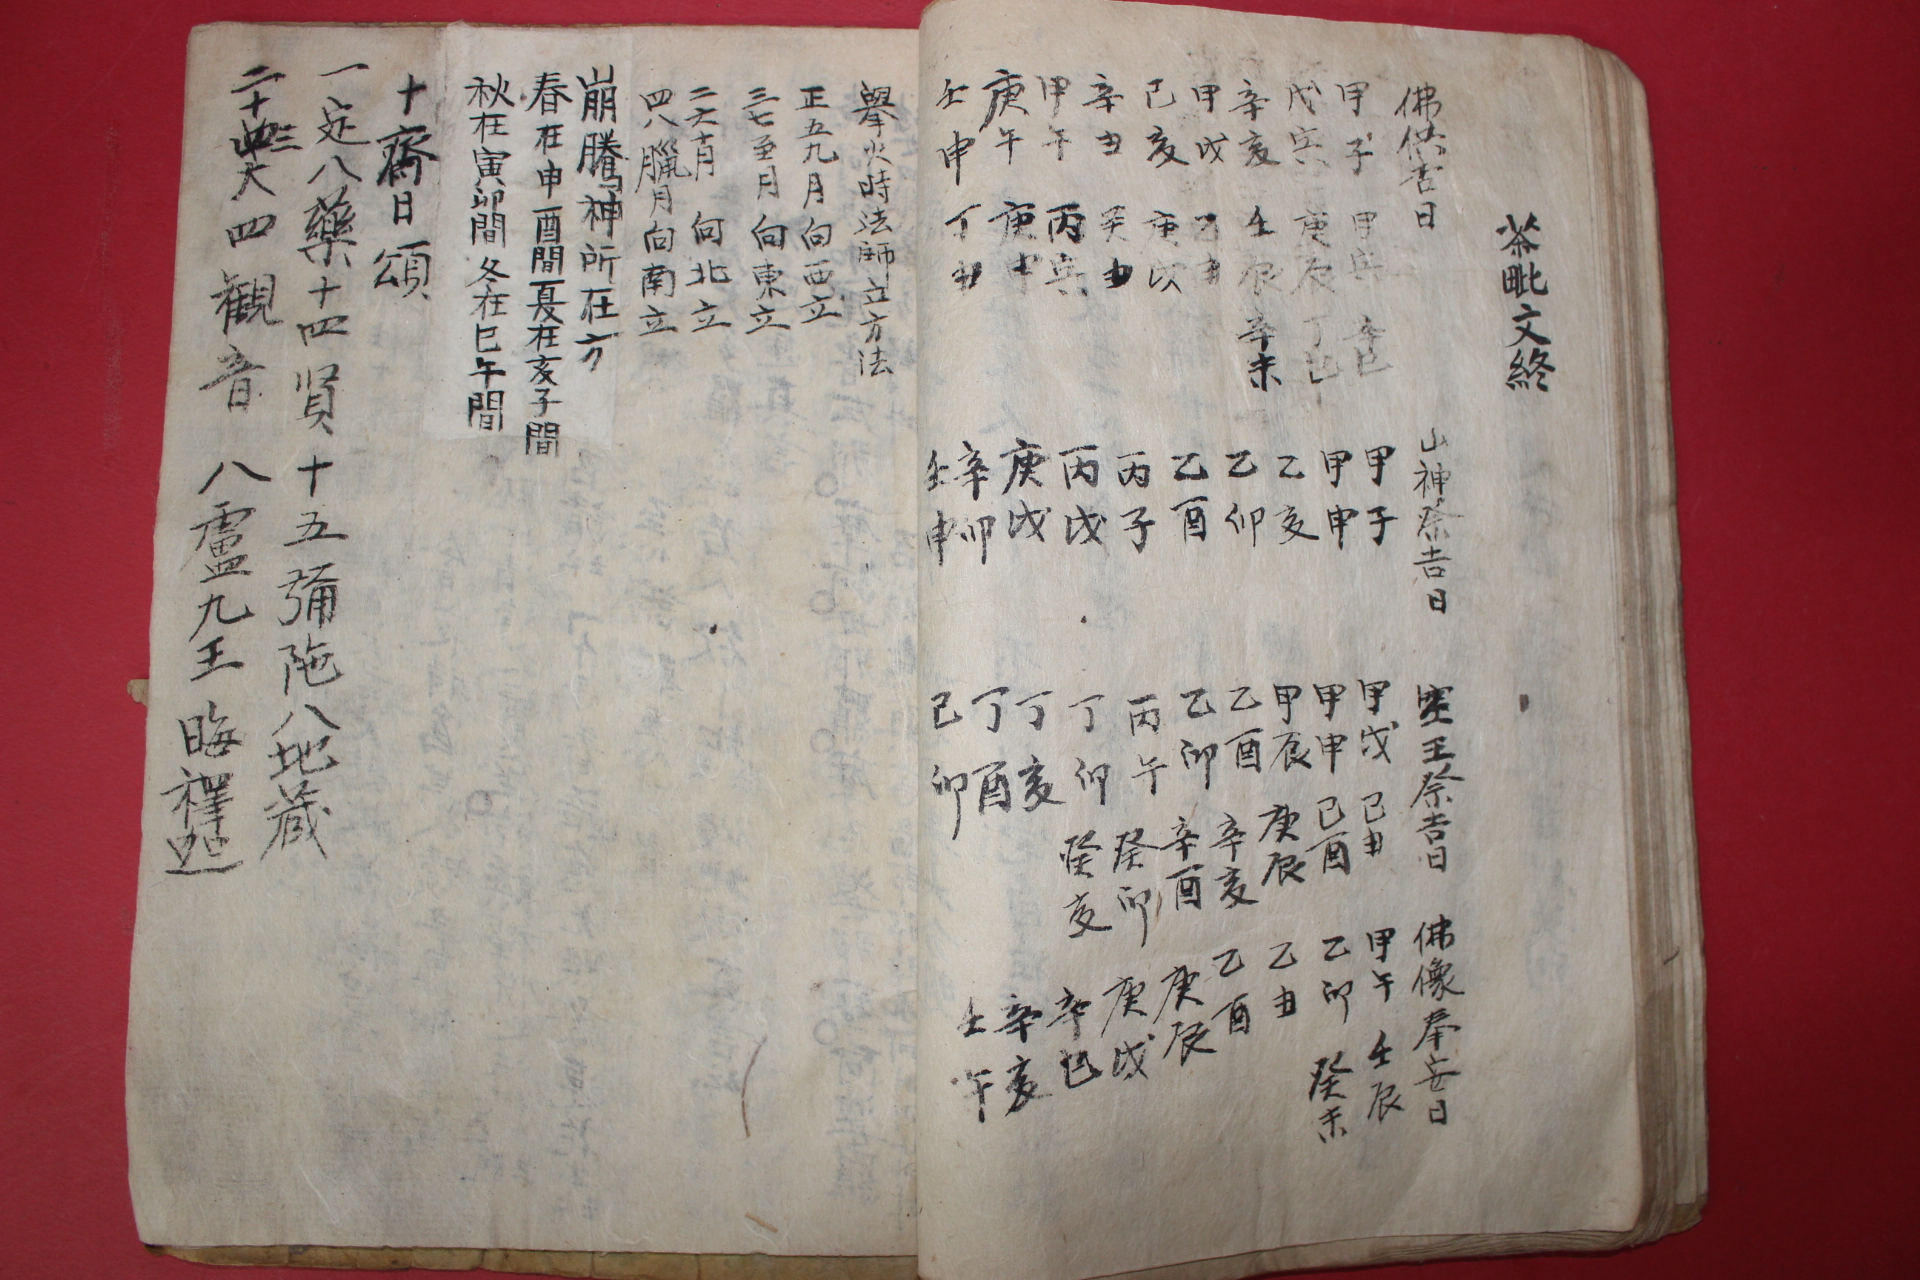 茶毗文終
佛供吉日
甲子 甲寅 辛巳
戊寅 庚辰 丁巳
辛亥 壬辰 辛未
甲戌 乙丑
己亥 庚戌
辛丑 癸丑
甲午 丙寅
庚午 庚申
壬申 丁丑
山神祭吉日
甲子
甲申
乙亥
乙卯
乙酉
丙子
丙戌
庚戌
辛卯
壬申
王祭吉日
甲戌 己丑
甲申 己酉
甲辰 庚辰
乙酉 辛亥
乙卯 辛酉
丙午 癸卯
丁卯 癸亥
丁亥
丁酉
己卯
佛像奉安日
甲午 壬辰
乙卯 癸未
乙丑
乙酉
庚辰
庚戌
辛巳
辛亥
壬午
擧火時法師立方法
正五九月向西立
三七至月向東立
二六十月 向北立
四八臘月向南立
崩騰神所在方
春在申酉間夏在亥子間
秋在寅卯間 冬在巳午間
十齋日頌
一定八藥十四賢 十五彌陀八地藏
二十三大四觀音 八盧九王晦釋迦